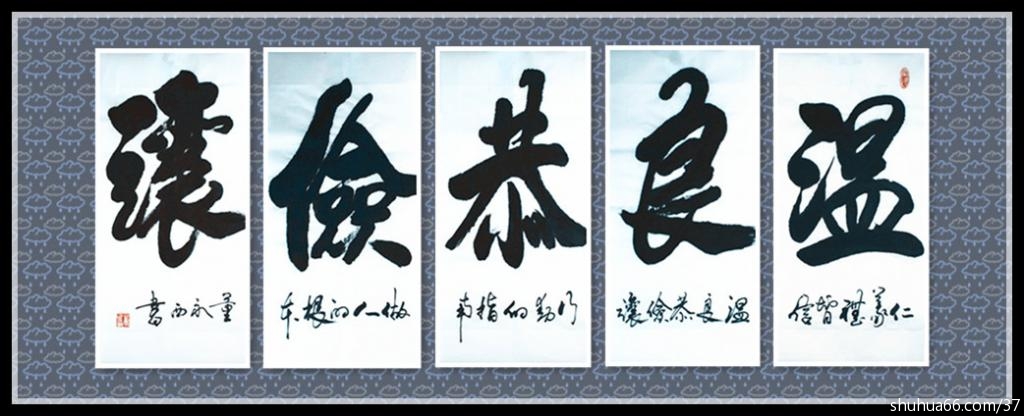 温良恭儉讓
仁義禮智信
温良恭儉讓
行動的指南
做人的根本
永西書
shuhua66.com/37